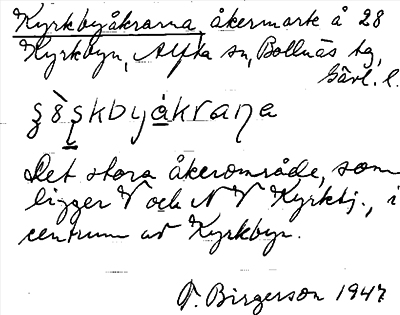 Kyrkbyåkrarna, åkermark å 28
Kyrkbyn, Alfta sn, Bollnäs tg,
Gävl. l.
Det stora åkerområde, som
ligger V och NV Kyrkbj., i
centrum av Kyrkbyn.
T. Birgerson 1947